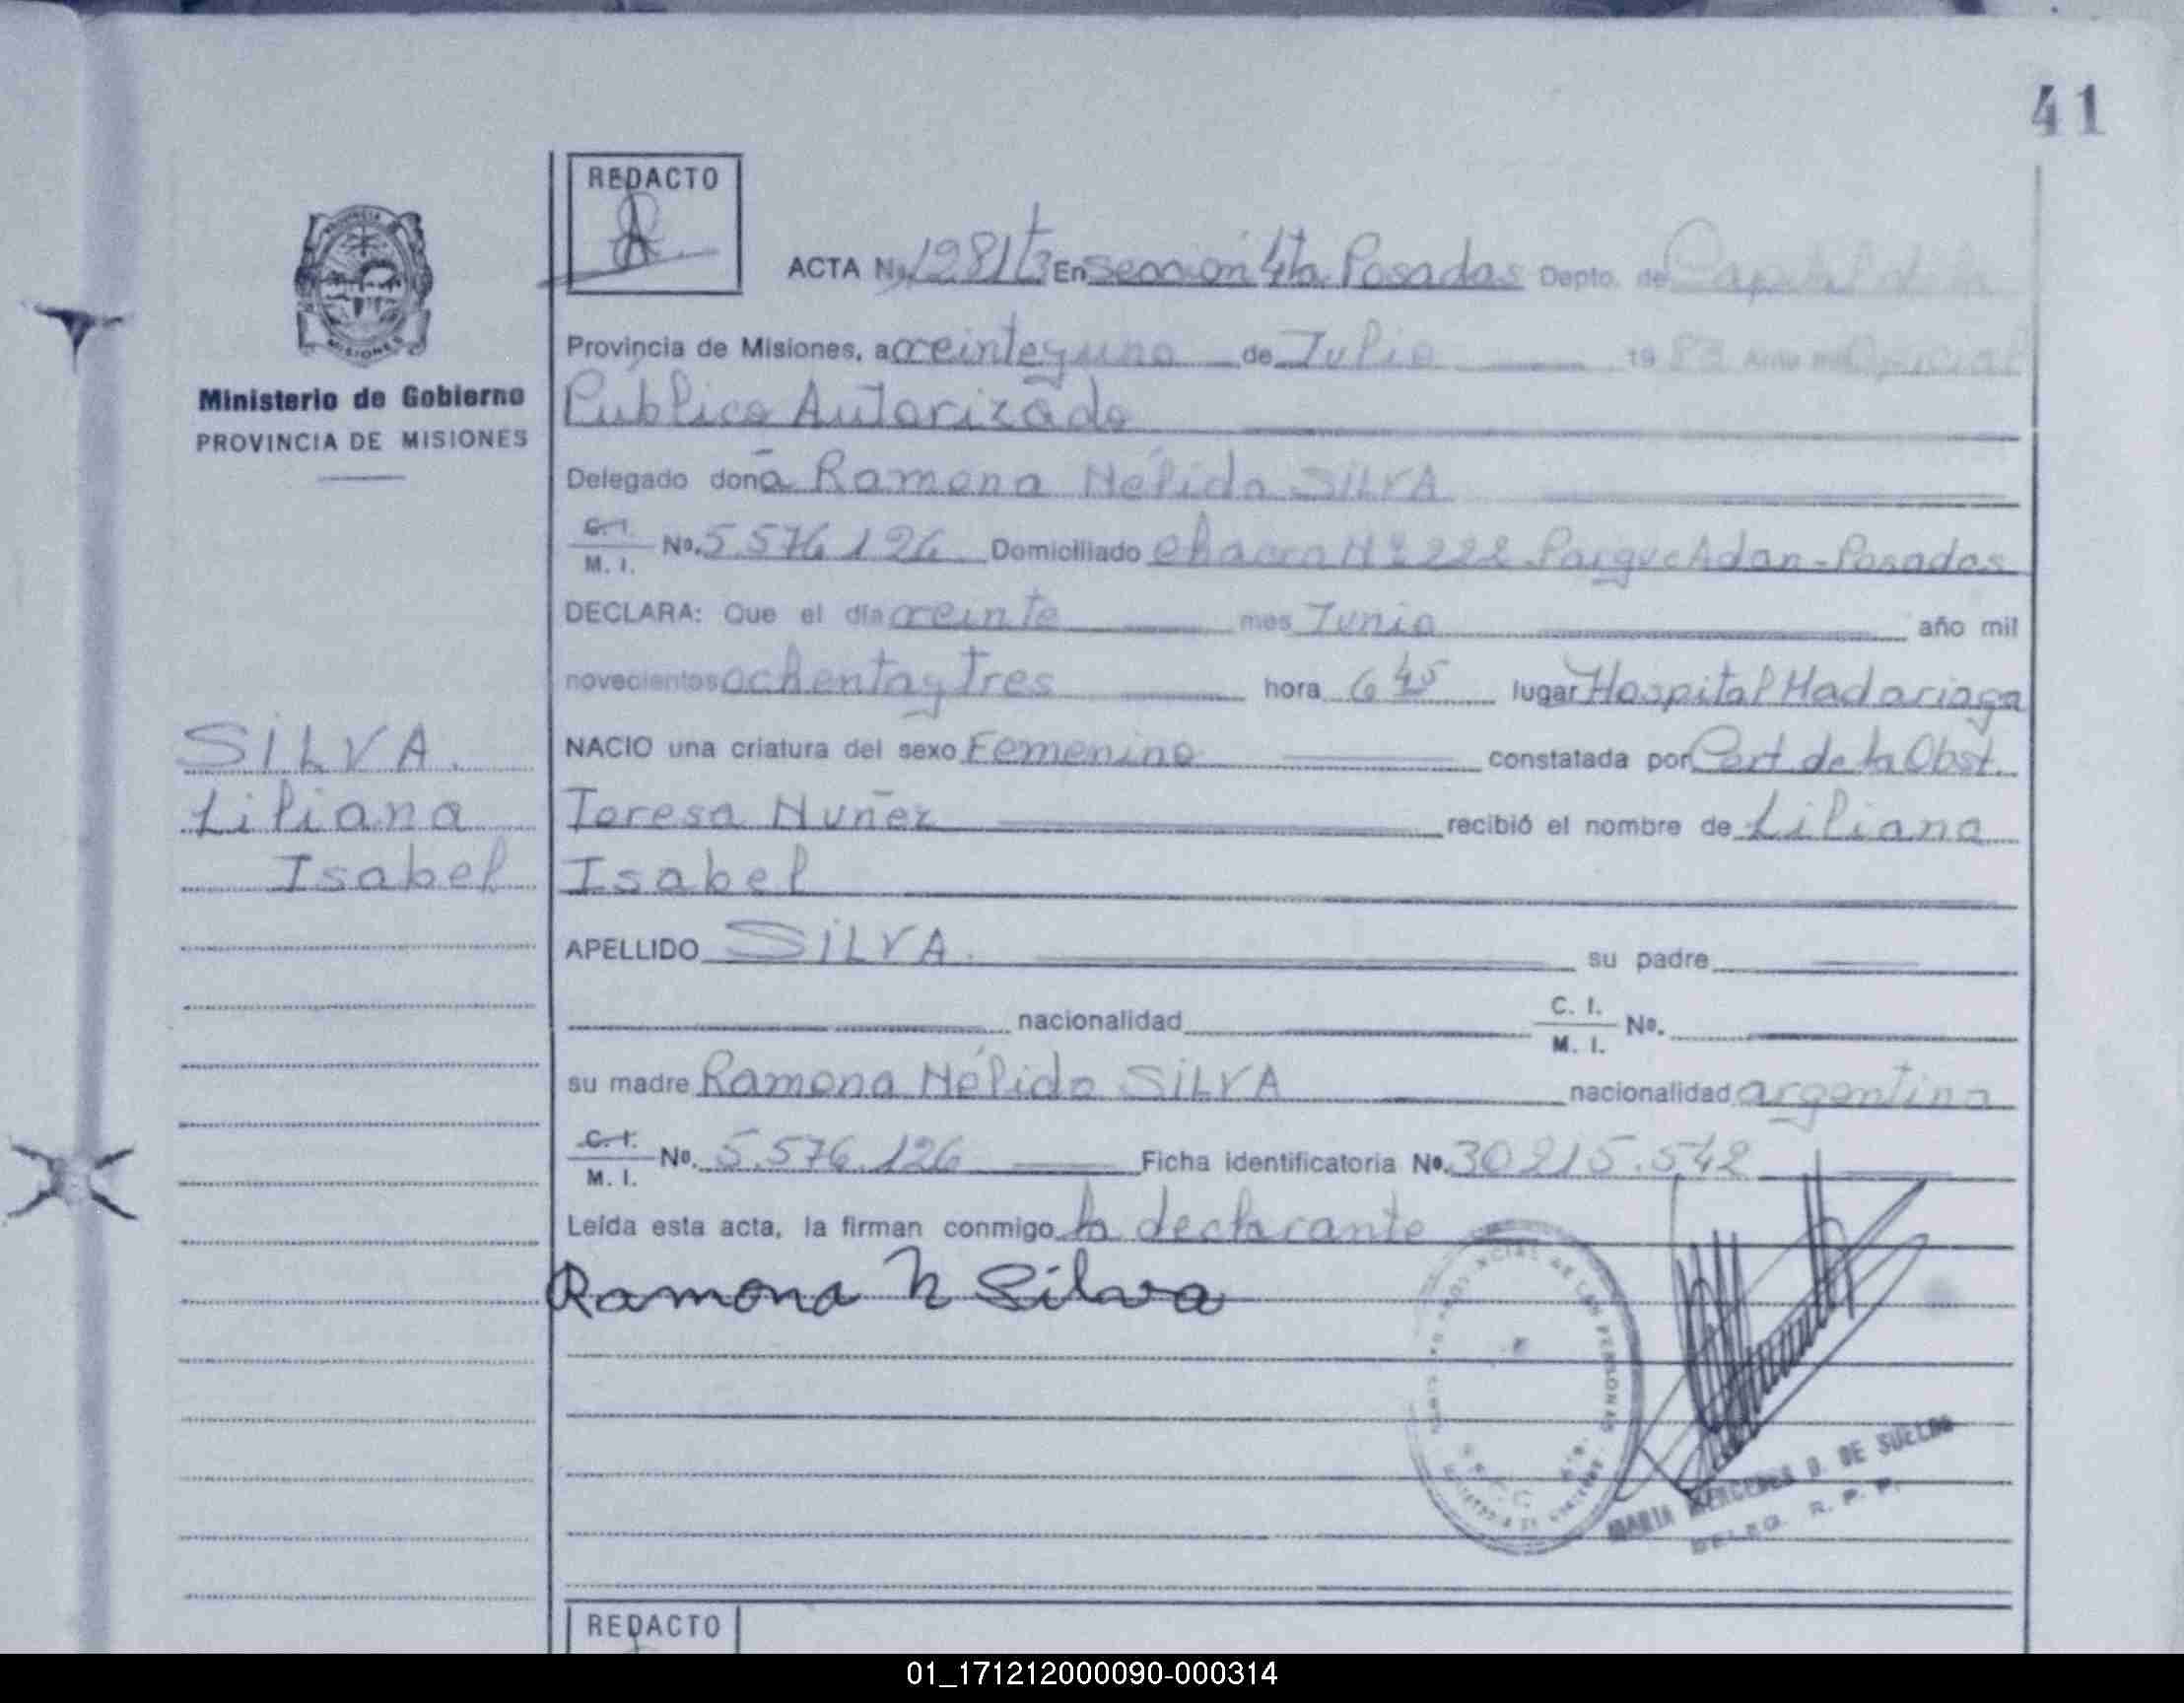 41
REDACTO
ACTA Nº 1281 t3 En Sección 4ta Posadas Depto. de Capital de la
Provincia de Misiones, a veinteyuno de Julio 1983 Ante mi Oficial
Ministerio de Gobierno
PROVINCIA DE MISIONES
Público Autorizado
Delegado doña Ramona Nélida SILVA
C. I. M. I. Nº. 5.576.126 Domiciliado Chacra Nº 222 Parque Adan - Posadas
DECLARA: Que el día veinte mes Junio año mil
novecientos ochentaytres hora 6 45 lugar Hospital Madariaga
NACIO una criatura del sexo Femenino constatada por Cert de la Obst.
Teresa Nuñez recibió el nombre de Liliana
Isabel
SILVA.
Liliana
Isabel
APELLIDO SILVA. su padre
nacionalidad C. I. M. I. Nº.
su madre Ramona Nélida SILVA nacionalidad argentina
C. I. M. I. Nº. 5.576.126 Ficha identificatoria Nº. 30215.542
Leída esta acta, la firman conmigo la declarante
Ramona N Silva
MARIA MERCEDES D. DE SUELDO
DELEG. R. P. P.
REDACTO
01_171212000090-000314